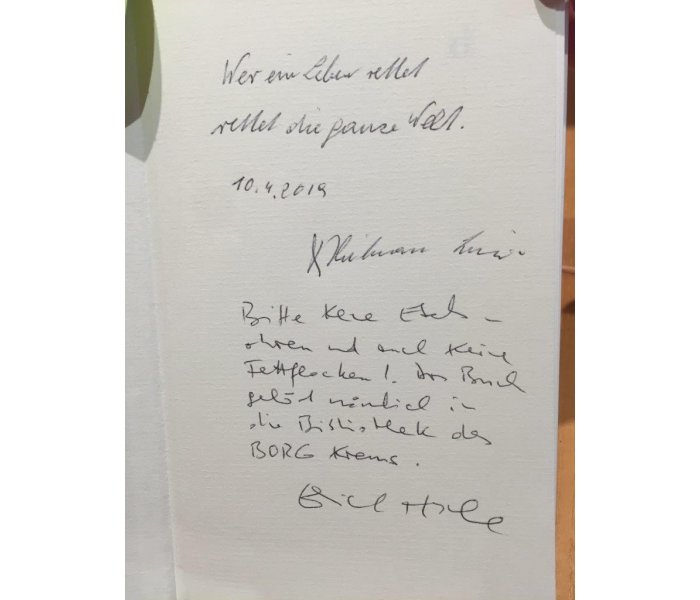 Wer ein Leben rettet
rettet die ganze Welt.
10.4.2019
Bitte keine Esels-
ohren und auch keine
Fettflecken! Das Buch
gehört nämlich in
die Bibliothek des
BORG Krems.
Erich